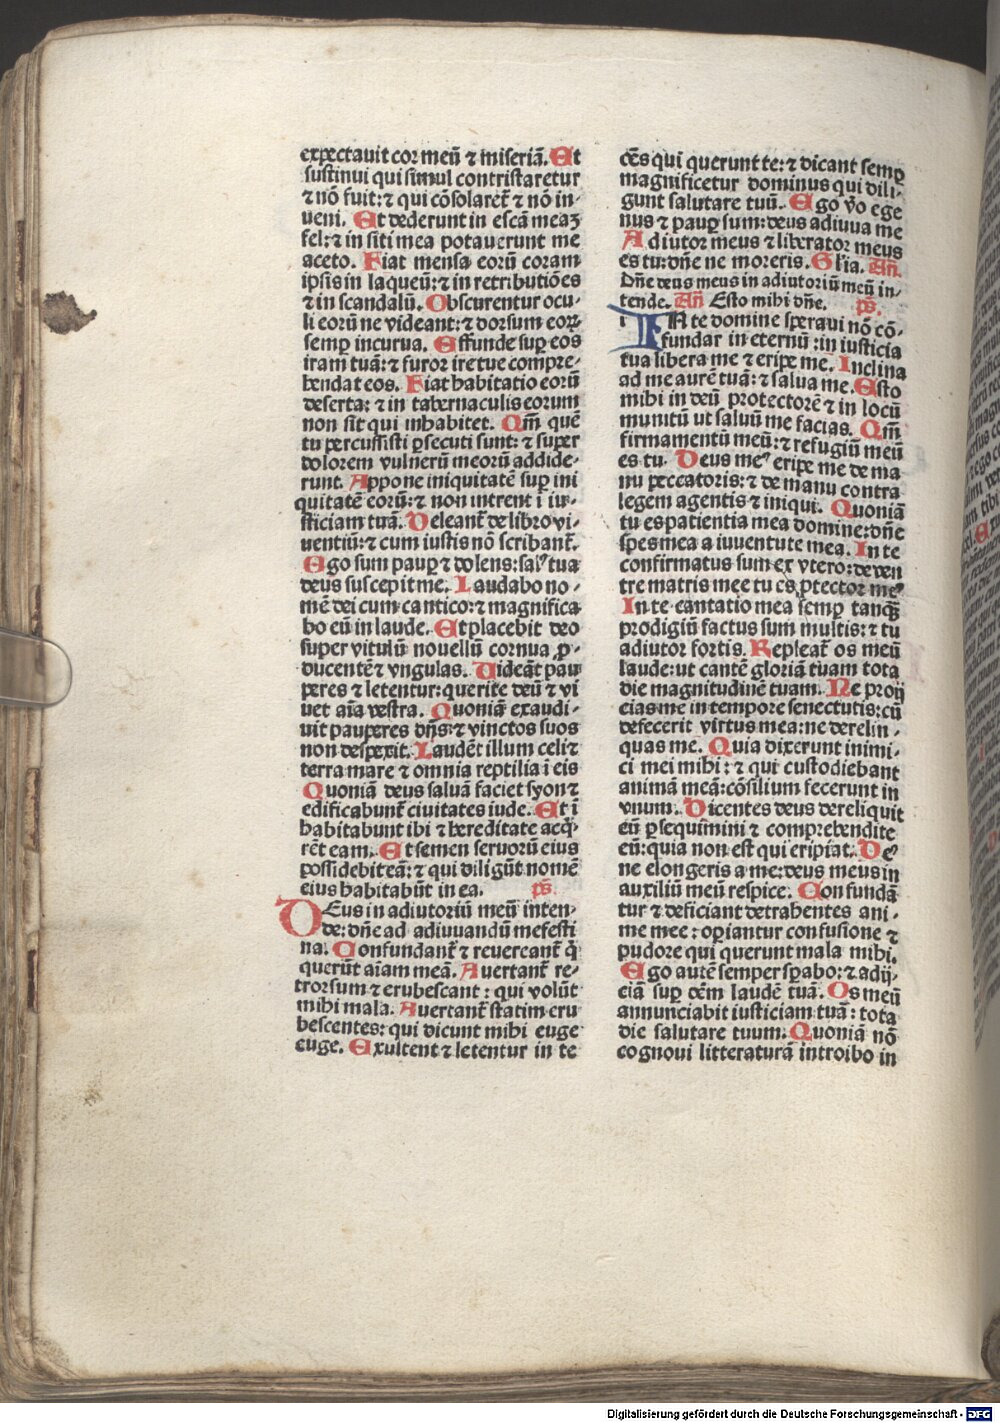 expectauit cor meū ⁊ miseriā. Et
sustinui qui simul contristaretur
⁊ nō fuit: ⁊ qui cōsolaret᷑ ⁊ nō in⸗
ueni. Et dederunt in escā meaꝫ
fel: ⁊ in siti mea potauerunt me
aceto. Fiat mensa eorū coram
ipsis in laqueū: ⁊ in retributiōes
⁊ in scandalū. Obscurentur ocu⸗
li eorū ne videant: ⁊ dorsum eoꝝ
semꝑ incurua. Effunde suꝑ eos
iram tuā: ⁊ furor ire tue compre⸗
hendat eos. Fiat habitatio eorū
deserta: ⁊ in tabernaculis eorum
non sit qui inhabitet. Qm̄ quē
tu percussisti ꝑsecuti sunt: ⁊ super
dolorem vulnerū meorū addide⸗
runt. Appone iniquitatē suꝑ ini
quitatē eorū: ⁊ non intrent ī iu⸗
sticiam tuā. Deleant᷑ de libro vi⸗
uentiū: ⁊ cum iustis nō scribant᷑.
Ego sum pauꝑ ⁊ dolens: salꝰ tua
deus suscepit me. Laudabo no⸗
mē dei cum cantico: ⁊ magnifica
bo eū in laude. Et placebit deo
super vitulū nouellū cornua ꝓ⸗
ducentē ⁊ vngulas. Videāt pau
peres ⁊ letentur: querite deū ⁊ vi
uet aīa vestra. Quoniā exaudi⸗
uit pauperes dn̄s: ⁊ vinctos suos
non despexit. Laudēt illum celi ⁊
terra mare ⁊ omnia reptilia ī eis
Quoniā deus saluā faciet syon ⁊
edificabunt᷑ ciuitates iude. Et ī
habitabunt ibi ⁊ hereditate acq̄⸗
rēt eam. Et semen seruorū eius
possidebit eā: ⁊ qui diligūt nomē
eius habitabūt in ea. ps̄.
DEus in adiutoriū meū inten⸗
de: dn̄e ad adiuuandū me festi
na. Confundant᷑ ⁊ reuereant᷑ q̄
querūt aīam meā. Auertant᷑ re⸗
trorsum ⁊ erubescant: qui volūt
mihi mala. Auertant᷑ statim eru
bescentes: qui dicunt mihi euge
euge. Exultent ⁊ letentur in te
oēs qui querunt te: ⁊ dicant semꝑ
magnificetur dominus qui dili⸗
gunt salutare tuū. Ego v̄o ege
nus ⁊ pauꝑ sum: deus adiuua me
Adiutor meus ⁊ liberator meus
es tu: dn̄e ne moreris. Gl̄ia. An̄.
Dn̄e deus meus in adiutoriū meū in⸗
tende. An̄ Esto mihi dn̄e. ps̄.
i IN te domine speraui nō cō⸗
fundar in eternū: in iusticia
tua libera me ⁊ eripe me. Inclina
ad me aurē tuā: ⁊ salua me. Esto
mihi in deū protectorē ⁊ in locū
munitū ut saluū me facias. Qm̄
firmamentū meū: ⁊ refugiū meū
es tu. Deus meꝰ eripe me de ma
nu peccatoris: ⁊ de manu contra
legem agentis ⁊ iniqui. Quoniā
tu es patientia mea domine: dn̄e
spes mea a iuuentute mea. In te
confirmatus sum ex vtero: de ven
tre matris mee tu es ꝓtector meꝰ
In te cantatio mea semꝑ tanq̄ꝫ
prodigiū factus sum multis: ⁊ tu
adiutor fortis. Repleat᷑ os meū
laude: ut cantē gloriā tuam tota
die magnitudinē tuam. Ne proij
cias me in tempore senectutis: cū
defecerit virtus mea: ne derelin⸗
quas me. Quia dixerunt inimi⸗
ci mei mihi: ⁊ qui custodiebant
animā meā: cōsilium fecerunt in
vnum. Dicentes deus dereliquit
eū ꝑsequimini ⁊ comprehendite
eū: quia non est qui eripiat. Deꝰ
ne elongeris a me: deus meus in
auxiliū meū respice. Confundā
tur ⁊ deficiant detrahentes ani⸗
me mee: operiantur confusione ⁊
pudore qui querunt mala mihi.
Ego aurē semper sꝑabo: ⁊ adij⸗
ciā suꝑ oēm laudē tuā. Os meū
annunciabit iusticiam tuā: tota
die salutare tuum. Quoniā nō
cognoui litteraturā introibo in
Digitalisierung gefördert durch die Deutsche Forschungsgemeinschaft - DFG